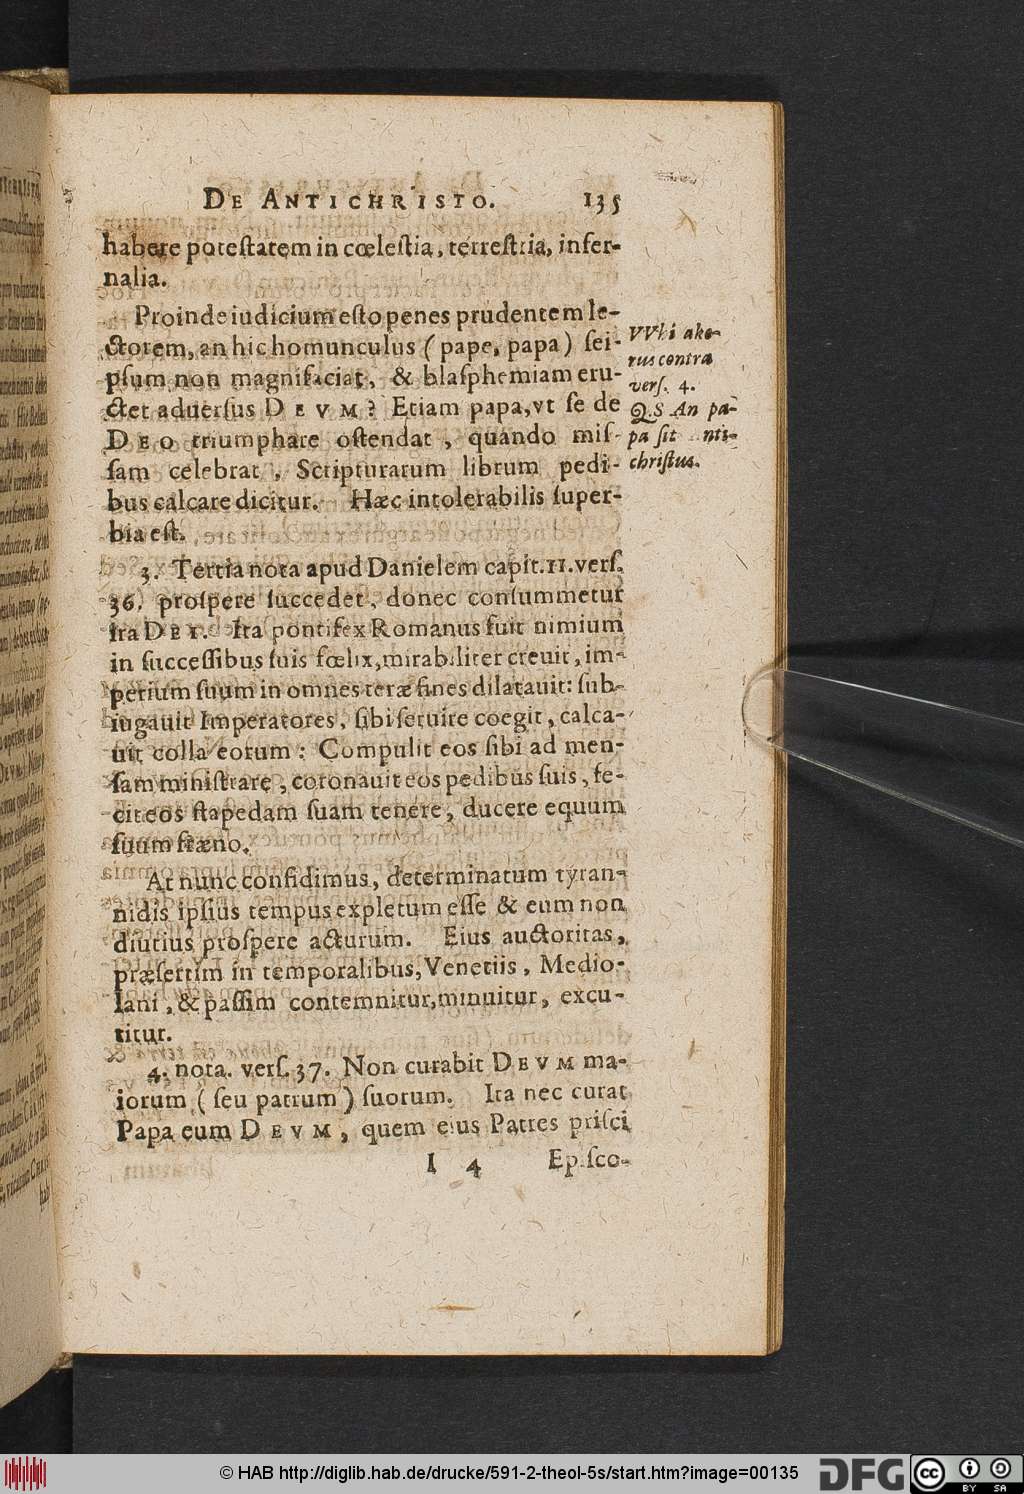 DE ANTICHRISTO. 135
habere potestatem in cœlestia, terrestria, infer-
nalia.
Proinde iudicium esto penes prudentem le-
ctorem, an hic homunculus (pape, papa) sei-
psum non magnifaciat, & blasphemiam eru-
ctet aduersus DEVM? Etiam papa, vt se de
DEO triumphare ostendat, quando mis-
sam celebrat, Scripturarum librum pedi-
bus calcare dicitur. Hæc intolerabilis super-
bia est.
VVhi ake-
rus contra
vers. 4.
Q.S An pa-
pa sit nti-
christus.
3. Tertia nota apud Danielem capit. 11. vers.
36. prospere succedet, donec consummetur
ira DEI. Ita pontifex Romanus fuit nimium
in successibus suis fœlix, mirabiliter creuit, im-
perium suum in omnes teræ fines dilatauit: sub-
iugauit Imperatores, sibi seruire coegit, calca-
uit colla eorum: Compulit eos sibi ad men-
sam ministrare, coronauit eos pedibus suis, fe-
cit eos stapedam suam tenere, ducere equum
suum fræno.
At nunc confidimus, determinatum tyran-
nidis ipsius tempus expletum esse & eum non
diutius prospere acturum. Eius auctoritas,
præsertim in temporalibus, Venetiis, Medio-
lani, & passim contemnitur, minuitur, excu-
titur.
4. nota. vers. 37. Non curabit DEVM ma-
iorum (seu patrum) suorum. Ita nec curat
Papa eum DEVM, quem eius Patres prisci
I 4 Episco-
© HAB http://diglib.hab.de/drucke/591-2-theol-5s/start.htm?image=00135
DFG
cc BY SA